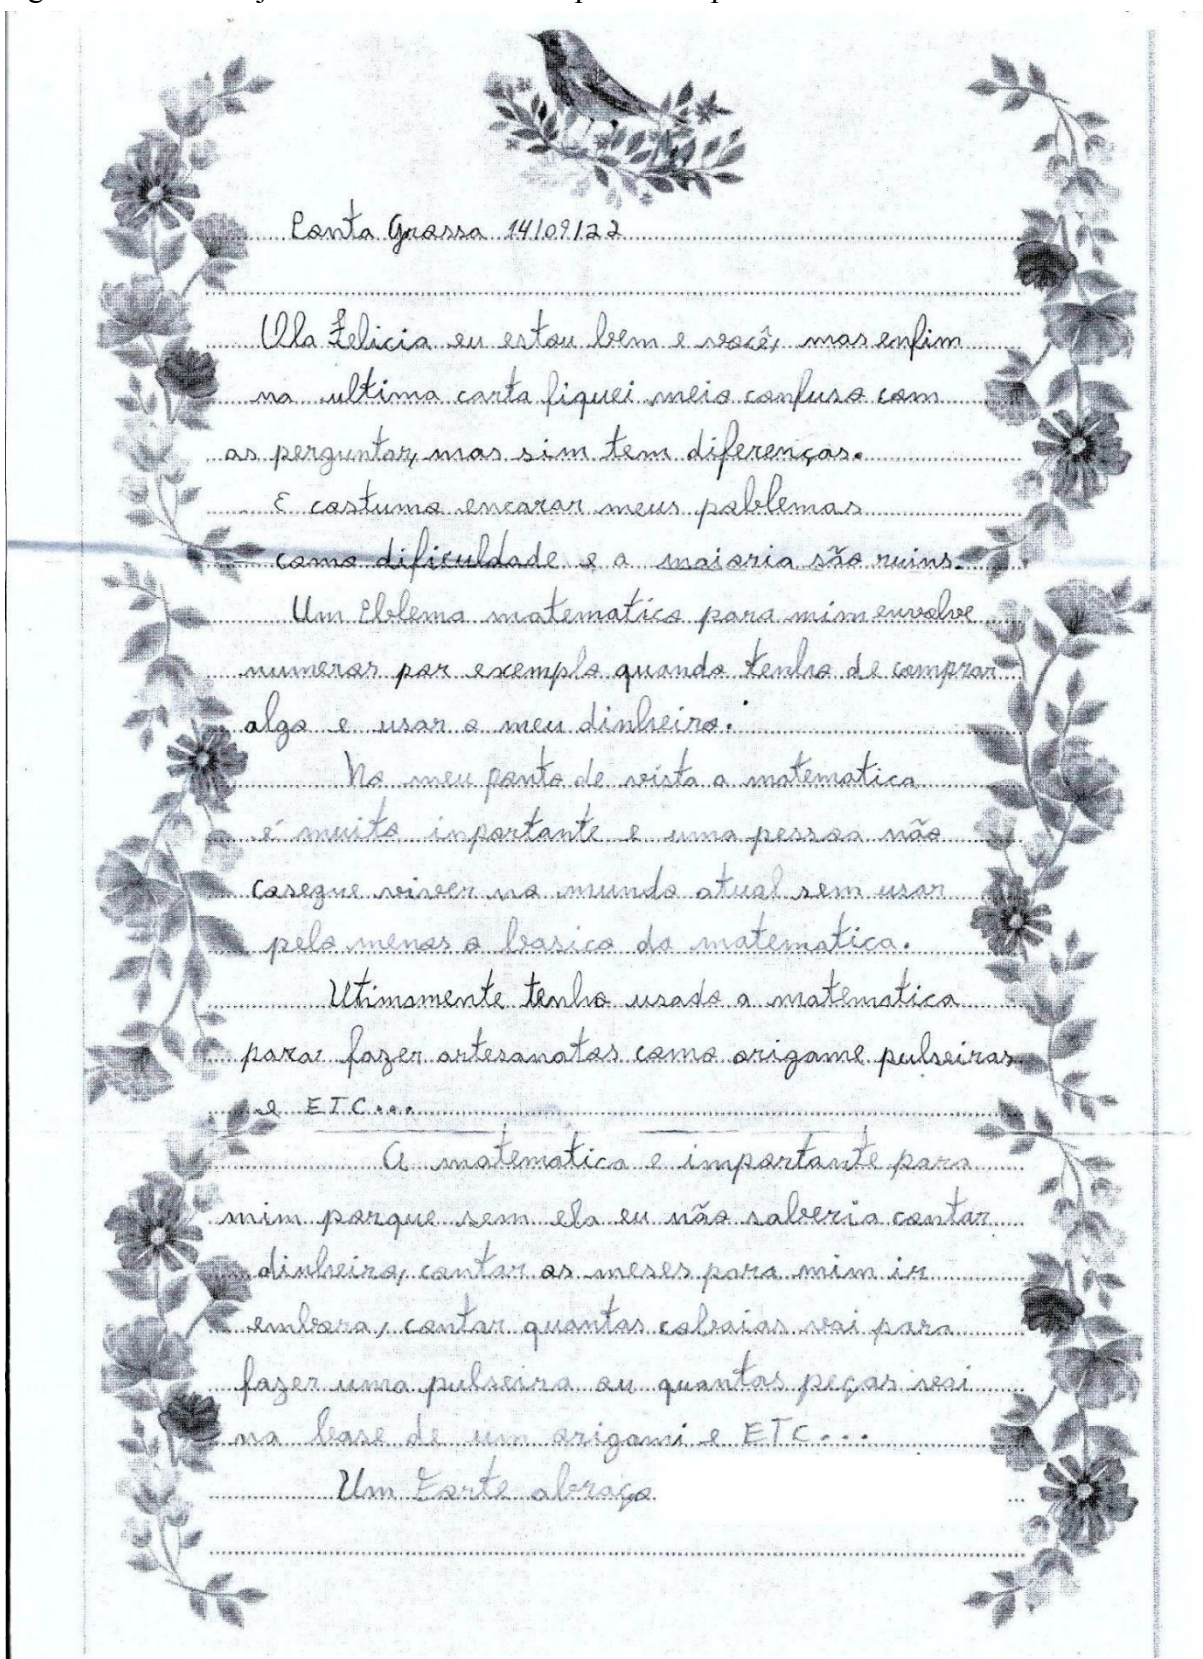 Ponta Grossa 14/09/22
Ola Felicia eu estou bem e você, mas enfim
na ultima carta fiquei meio confuso com
as perguntas, mas sim tem diferenças.
E costumo encarar meus poblemas
como dificuldade e a maioria são ruins.
Um matematico para mim envolve
numeros por exemplo quando tenho de comprar
algo e usar o meu dinheiro.
No meu ponto de vista a matematica
é muito importante e uma pessoa não
cosegue viver no mundo atual sem usar
pelo menos o basico da matematica.
Utimamente tenho usado a matematica
para fazer artesanatos como origame pulseiras
e ETC...
A matematica e importante para
mim porque sem ela eu não saberia contar
dinheiro, contar os meses para mim ir
embora, contar quantas vai para
fazer uma pulseira ou quantas peças
na base de um origami e ETC...
Um Forte abraço